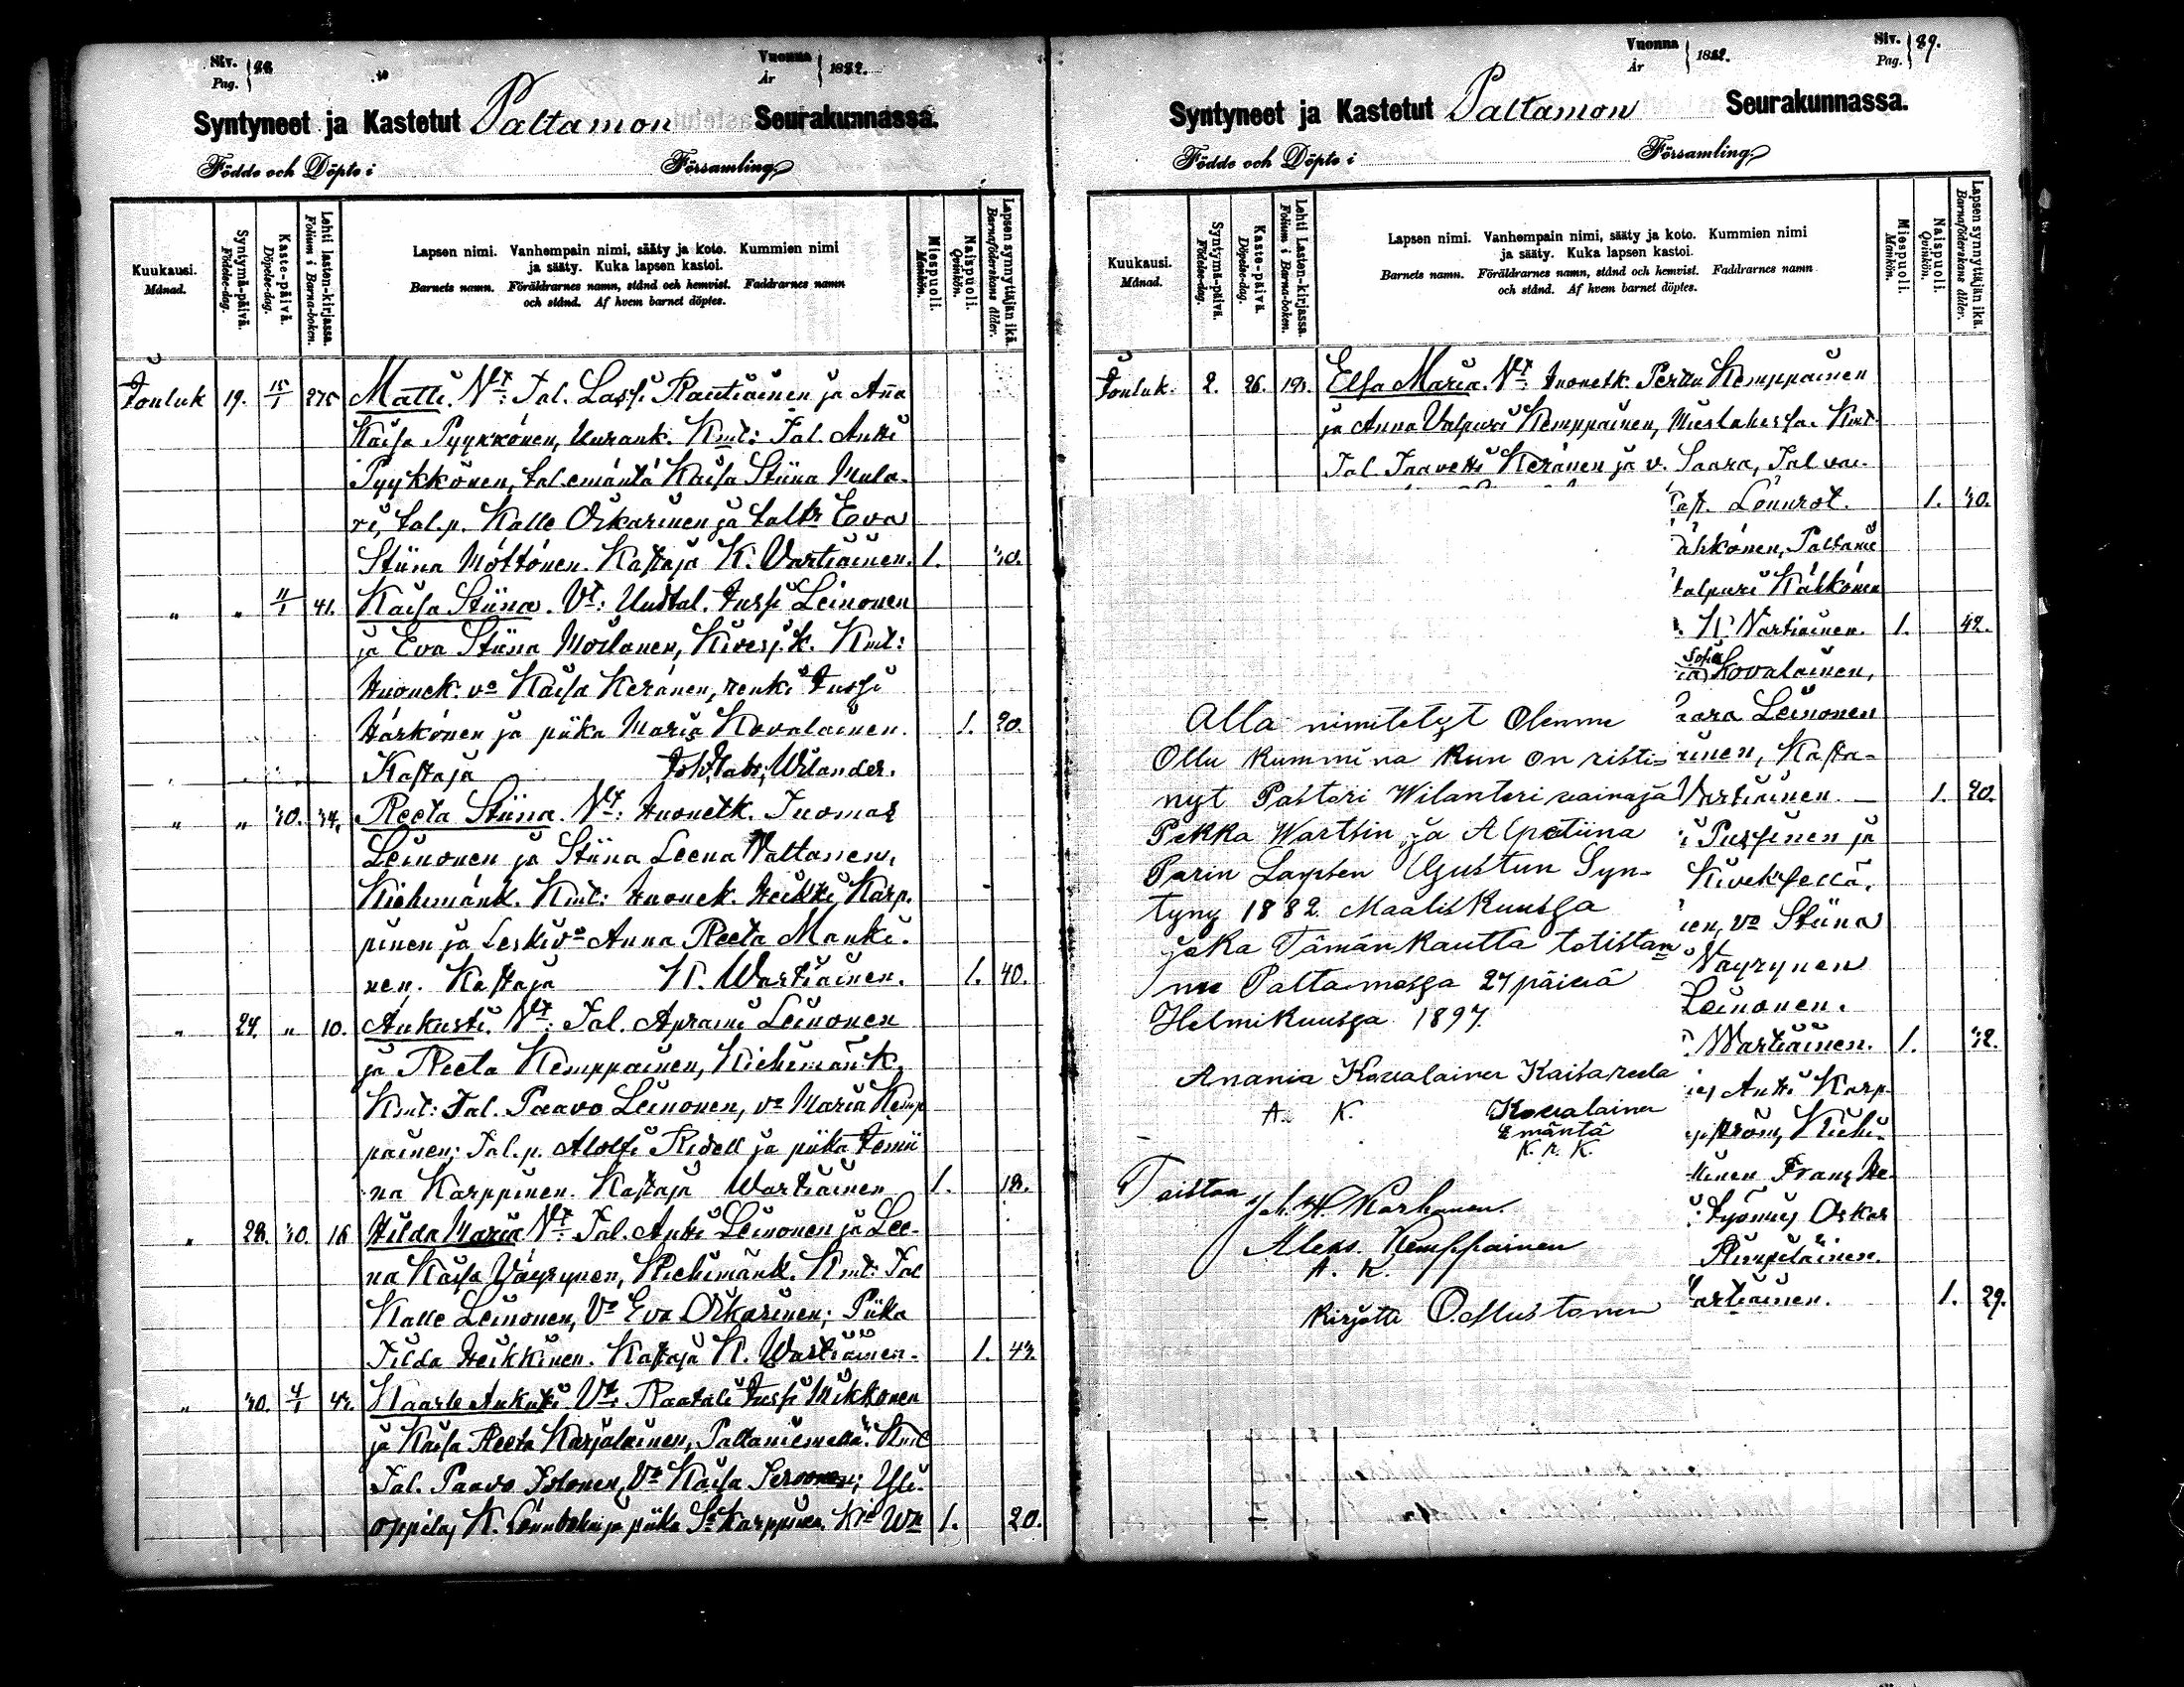 Siv. Pag. 88
Vuonna År 1882.
Syntyneet ja Kastetut Paltamon Seurakunnassa.
Födde och Döpte i Församling
Kuukausi. Månad.
Syntymä-päivä. Födelse-dag.
Kaste-päivä. Döpelse-dag.
Lehti lasten-kirjassa. Folium i Barna-boken.
Lapsen nimi. Vanhempain nimi, sääty ja koto. Kummien nimi
ja sääty. Kuka lapsen kastoi.
Barnets namn. Föräldrarnes namn, stånd och hemvist. Faddrarnes namn
och stånd. Af hvem barnet döptes.
Miespuoli. Mankön.
Naispuoli. Qvinkön.
Lapsen synnyttäjän ikä. Barnaföderskans ålder.
Jouluk 19. 15/1 275 Matti. Vt: Tal. Lassi Rautiainen ja Anna
Kaisa Pyykkönen, Uurank. Kmt: Tal. Antti
Pyykkönen, tal. emäntä Kaisa Stiina Mula-
ri, tal.p. Kalle Oskarinen ja taltr Eva
Stiina Möttönen. Kastaja K. Vartiainen. 1. 30.
" " 11/1 41. Kaisa Stiina. Vt: Uudtal. Jussi Leinonen
ja Eva Stiina Moilanen, Kivesj.k. Kmt:
Huonek. vo Kaisa Keränen, renki Jussi
Härkönen ja piika Maria Kovalainen. 1. 20.
Kastaja Joh. Wilander.
" " 30. 34. Reeta Stiina. Vt: Huonetk. Tuomas
Leinonen ja Stiina Leena Valtanen,
Kiehimänk. Kmt: Huonek. Heikki Karp-
pinen ja Leskivo Anna Reeta Manki-
nen. Kastaja K. Wartiainen. 1. 40.
" 24. " 10. Aukusti. Vt: Tal. Aprami Leinonen
ja Reeta Kemppainen, Kiehimänk.
Kmt: Tal. Paavo Leinonen, vo Maria Kemp-
painen; Tal.p. Alolfi Ridell ja piika Hemii
na Karppinen. Kastaja Wartiainen 1. 18.
" 28. 30. 16 Hilda Maria Vt: Tal. Antti Leinonen ja Lee-
na Kaisa Väyrynen, Kiehimänk. Kmt: Tal
Kalle Leinonen, Vo Eva Oskarinen; Piika
Tilda Heikkinen. Kastaja K. Wartiainen. 1. 43.
" 30. 4/1 43. Kaarle Aukusti Vt: Raatali Jussi Mikkonen
ja Kaisa Reeta Karjalainen, Paltaniemellä. Kmt
Tal. Paavo Tolonen, Vo Kaisa; Yli-
oppilas K. Lönnbohm ja piika Sa Karppinen. Kja Wn 1. 20.
Vuonna År 1882.
Siv. Pag. 89.
Syntyneet ja Kastetut Paltamon Seurakunnassa.
Födde och Döpte i Församling
Kuukausi. Månad.
Syntymä-päivä. Födelse-dag.
Kaste-päivä. Döpelse-dag.
Lehti Lasten-kirjassa. Folium i Barna-boken.
Lapsen nimi. Vanhempain nimi, sääty ja koto. Kummien nimi
ja sääty. Kuka lapsen kastoi.
Barnets namn. Föräldrarnes namn, stånd och hemvist. Faddrarnes namn
och stånd. Af hvem barnet döptes.
Miespuoli. Mankön.
Naispuoli. Qvinkön.
Lapsen synnyttäjän ikä. Barnaföderskans ålder.
Jouluk. 2. 26. 193. Elsa Maria. Vt: Huonetk. Perttu Kemppainen
ja Anna Valpuri Kemppainen, Mieslahessa. Kmt.
Tal. Taavetti Keränen ja v. Saara, Tal. vai-
ast. Lönnrot. 1. 30.
ähkönen, Paltanie
alpuri Kähkönen
K. Vartiainen. 1. 42.
Sofia Kovalainen,
aara Leinonen
inen, Kasta-
Vartiainen. 1. 20.
i Pussinen ja
Kiveksellä.
en, vo Stiina
Väyrynen
Leinonen.
Wartiainen. 1. 32.
Antti Karp-
ström, Kiehi-
kinen Frans He-
Työmies Oskar
Rimpiläinen.
artiainen. 1. 29.
Alla nimitetyt Olemme
Ollu kummina kun on risti-
nyt Pastori Wilanteri vainaja
Pekka Wartsin ja Alpetiina
Parin Lapsen Agustun Syn-
tyny 1882 Maaliskuussa
joka Tämän kautta totistam-
me Paltamossa 27 päivä
Helmikuussa 1897.
Anania Kovalainen Kaisa reeta
A. K. Kovalainen
Emäntä
K. r. K.
Toistaa
Joh. H. Karhunen.
Aleks. Kemppainen
A. K.
Kirjotti O. Mustonen